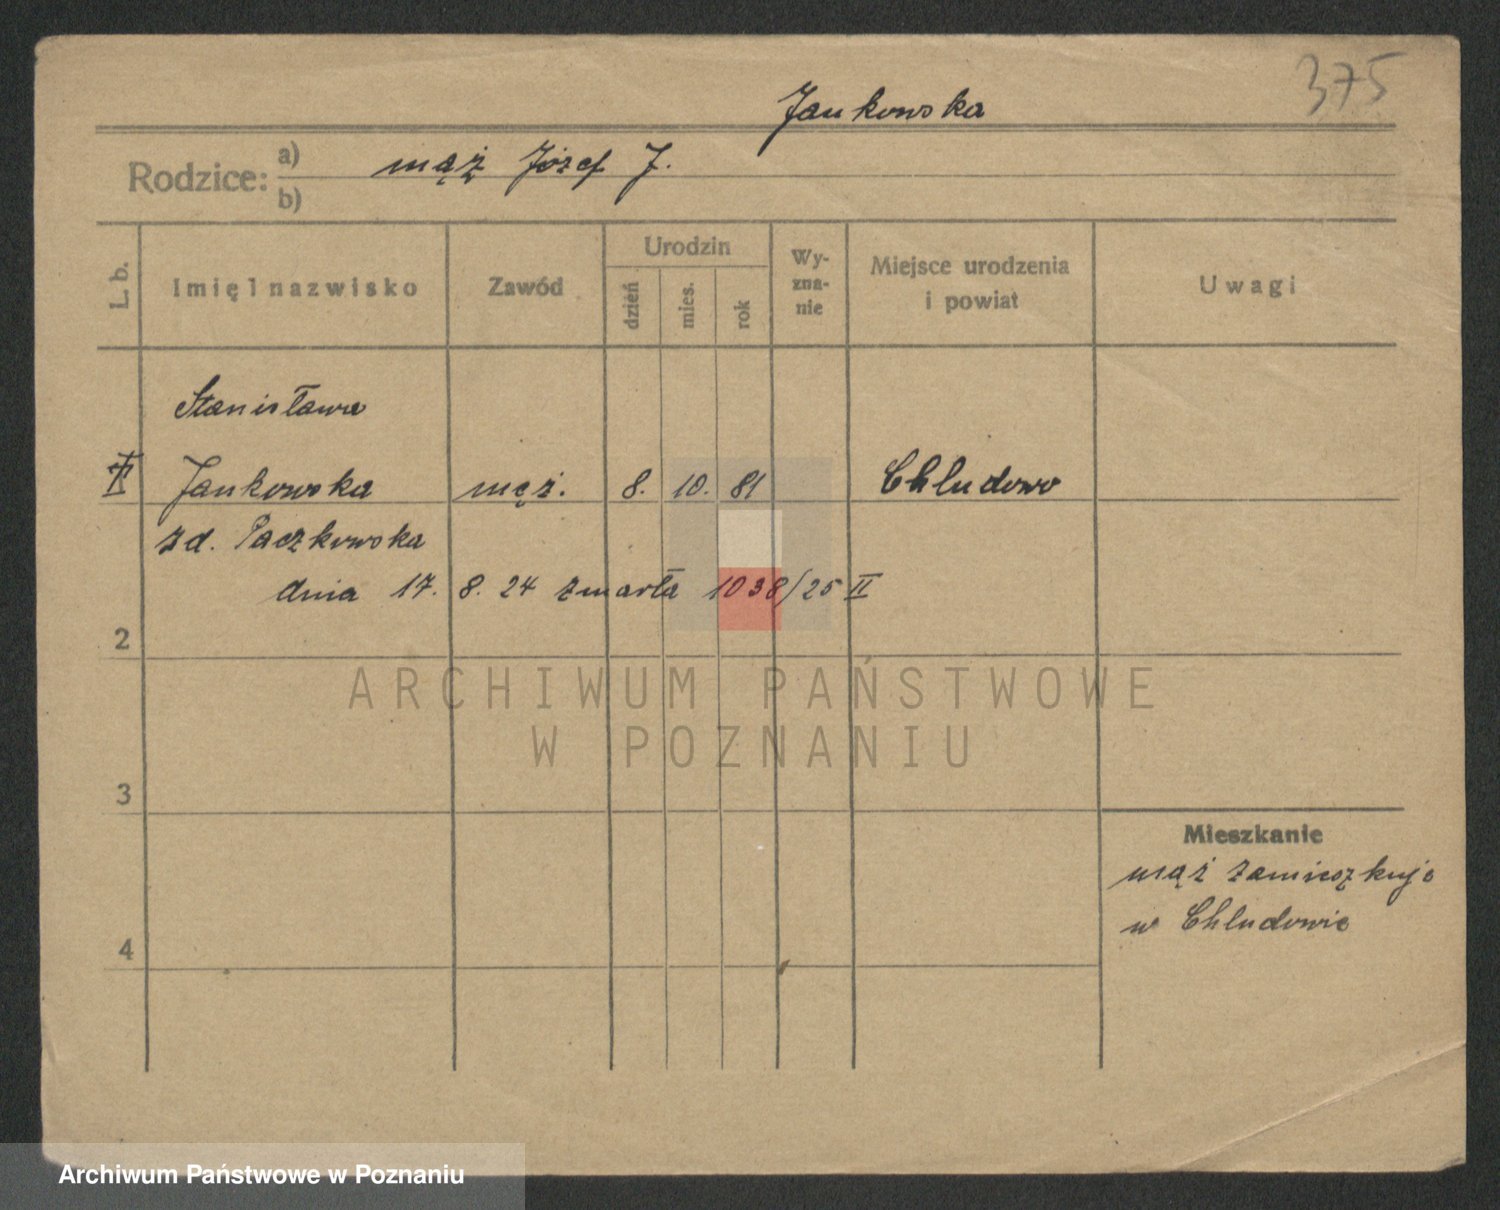 375
Jankowska
Rodzice: a) mąż Józef J.
b)
L. b. Imię I nazwisko Zawód Urodzin dzień mies. rok Wyznanie Miejsce urodzenia i powiat Uwagi
Stanisława
Jankowska męż. 8. 10. 81 Chludowo
zd. Paczkowska
dnia 17. 8. 24 zmarła 1038/25 II
2
ARCHIWUM PAŃSTWOWE
W POZNANIU
3
Mieszkanie
mąż zamieszkuje
w Chludowie
4
Archiwum Państwowe w Poznaniu